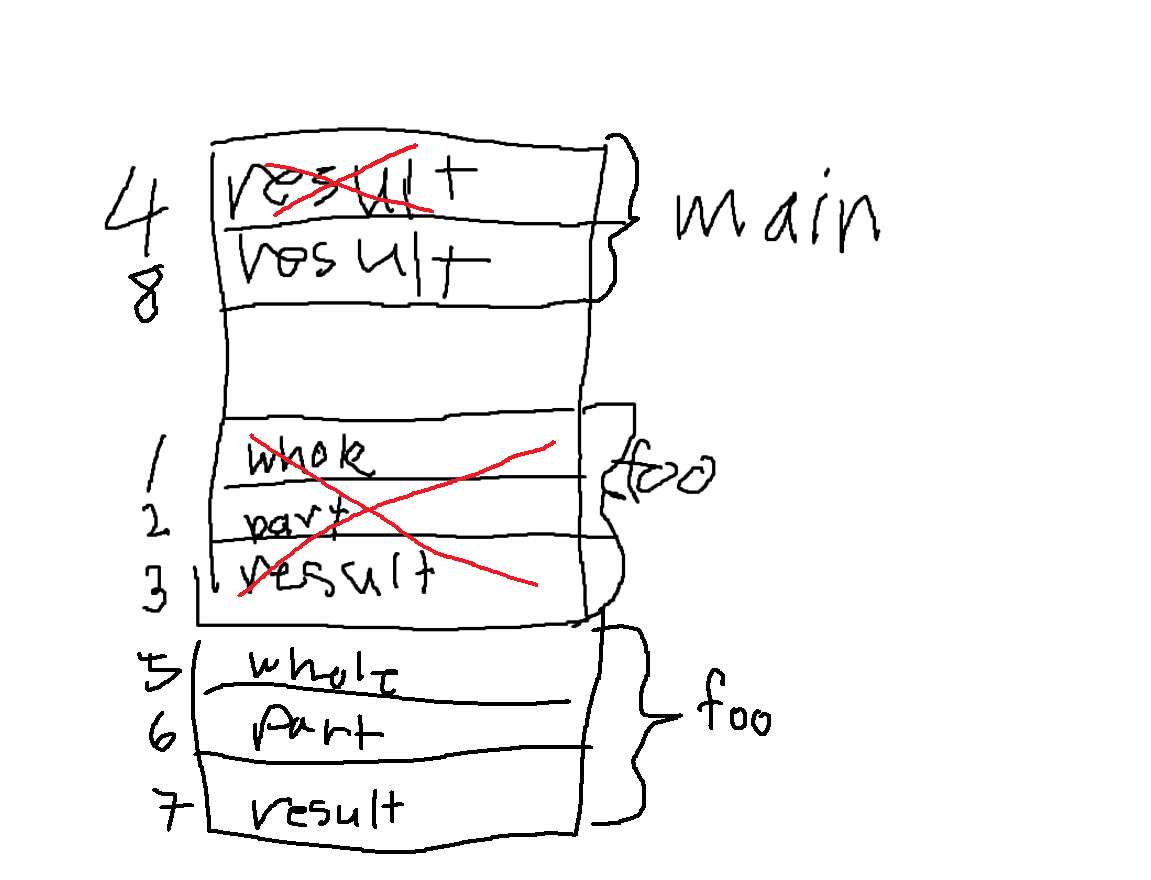 4 result
8 result
main
1 whole
2 part
3 result
foo
5 whole
6 part
7 result
foo